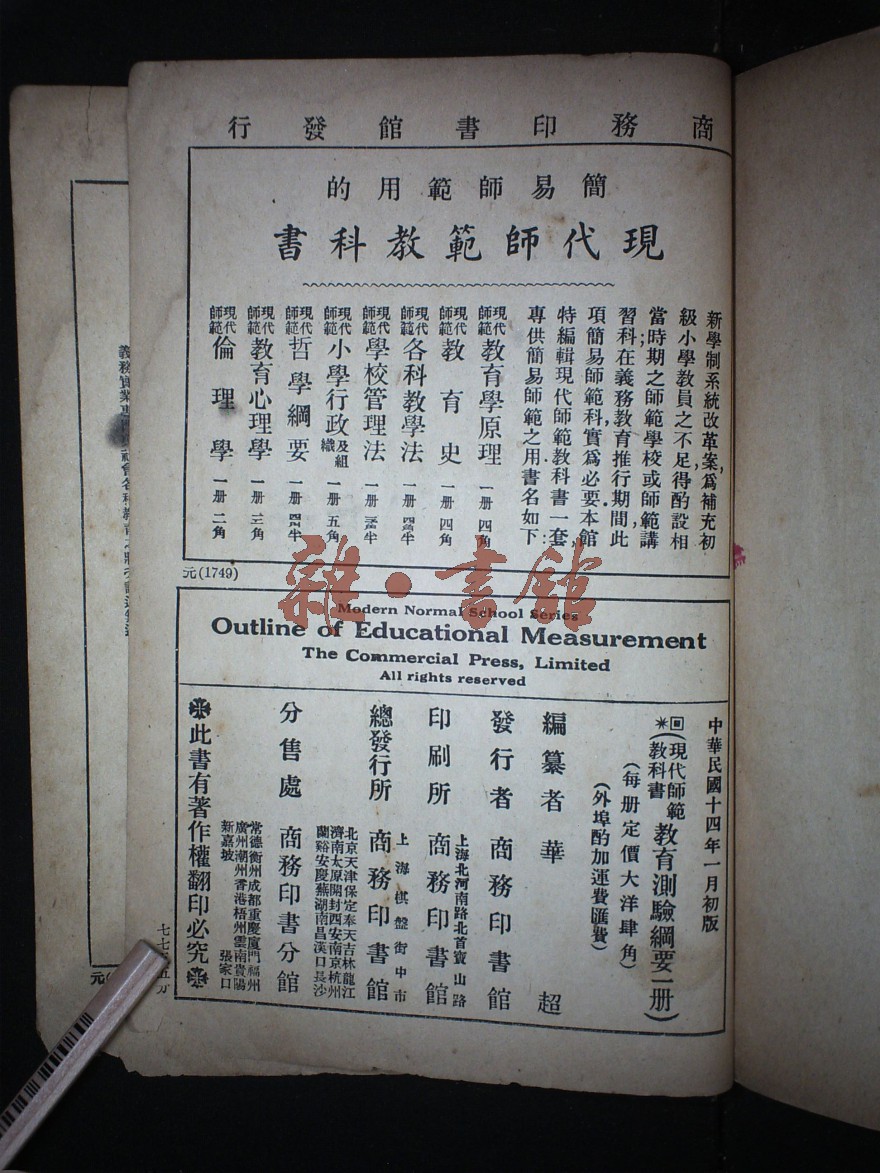 商務印書館發行
簡易師範用的
現代師範教科書
新學制系統改革案,爲補充初
級小學教員之不足得酌設相
當時期之師範學校或師範講
習科在義務教育推行期間,此
項簡易師範科實爲必要.本館
特編輯現代師範教科書一套,
專供簡易師範之用書名如下:
現代師範 教育學原理 一册 四角
現代師範 教育史 一册 四角
現代師範 各科教學法 一册
現代師範 學校管理法 一册
現代師範 小學行政及組織 一册 五角
現代師範 哲學綱要 一册
現代師範 教育心理學 一册 三角
現代師範 倫理學 一册 二角
元(1749)
雜·書館
Modern Normal School Series
Outline of Educational Measurement
The Commercial Press, Limited
All rights reserved
中華民國十四年一月初版
(現代師範教科書 教育測驗綱要一册)
(每册定價大洋肆角)
(外埠酌加運費匯費)
編纂者 華超
發行者 商務印書館
印刷所 上海北河南路北首寶山路 商務印書館
總發行所 上海棋盤街中市 商務印書館
分售處 商務印書分館
北京天津保定奉天吉林龍江
濟南太原開封西安南京杭州
蘭谿安慶蕪湖南昌漢口長沙
常德衡州成都重慶廈門福州
廣州潮州香港梧州雲南貴陽
新嘉坡 張家口
此書有著作權翻印必究